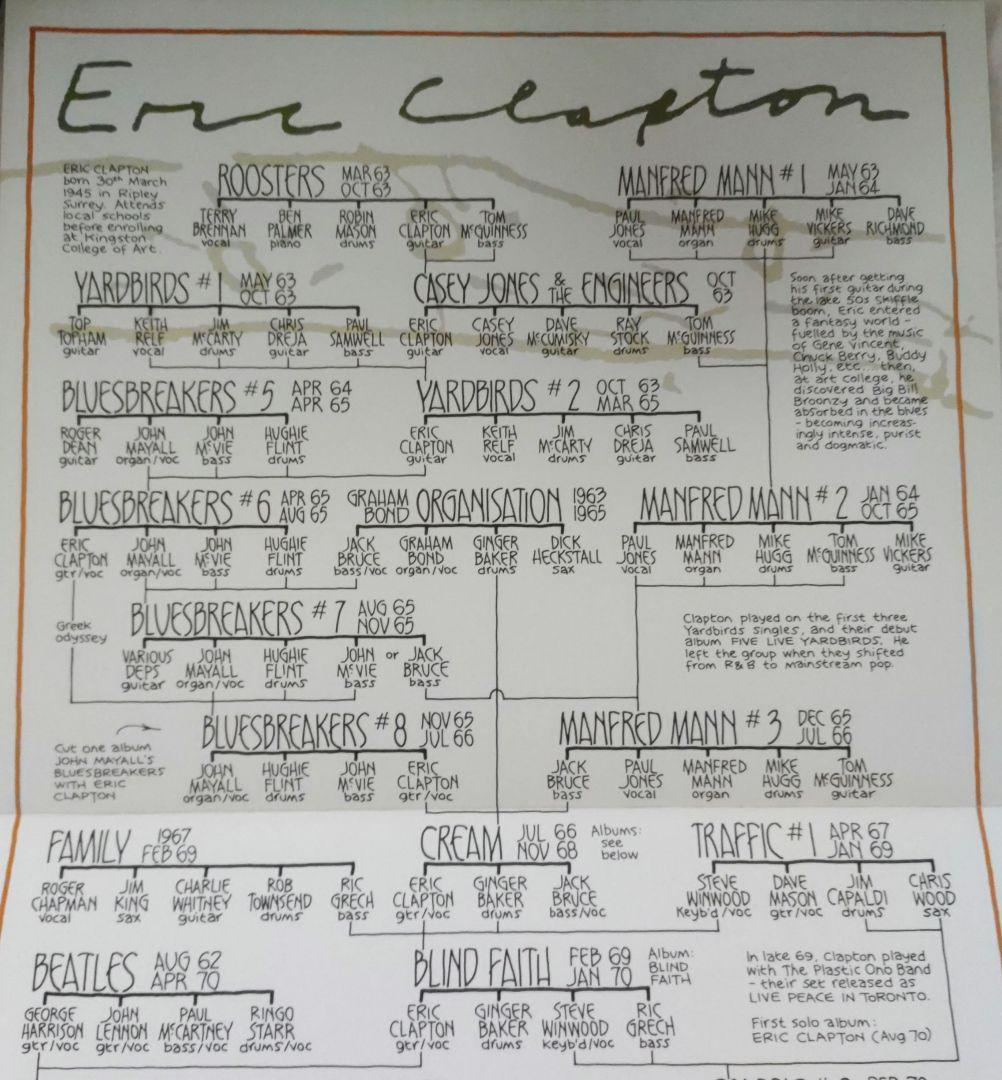 Eric Clapton
ERIC CLAPTON
born 30th March
1945 in Ripley
Surrey. Attends
local schools
before enrolling
at Kingston
College of Art.
ROOSTERS MAR 63
OCT 63
TERRY BRENNAN vocal
BEN PALMER piano
ROBIN MASON drums
ERIC CLAPTON guitar
TOM McGUINNESS bass
MANFRED MANN #1 MAY 63
JAN 64
PAUL JONES vocal
MANFRED MANN organ
MIKE HUGG drums
MIKE VICKERS guitar
DAVE RICHMOND bass
YARDBIRDS #1 MAY 63
OCT 63
TOP TOPHAM guitar
KEITH RELF vocal
JIM McCARTY drums
CHRIS DREJA guitar
PAUL SAMWELL bass
CASEY JONES & THE ENGINEERS OCT
63
ERIC CLAPTON guitar
CASEY JONES vocal
DAVE McCUMISKY guitar
RAY STOCK drums
TOM McGUINNESS bass
Soon after getting
his first guitar during
the late 50s skiffle
boom, Eric entered
a fantasy world -
fuelled by the music
of Gene Vincent,
Chuck Berry, Buddy
Holly, etc... then,
at art college, he
discovered Big Bill
Broonzy and became
absorbed in the blues
- becoming increas-
ingly intense, purist
and dogmatic.
BLUESBREAKERS #5 APR 64
APR 65
ROGER DEAN guitar
JOHN MAYALL organ/voc
JOHN McVIE bass
HUGHIE FLINT drums
YARDBIRDS #2 OCT 63
MAR 65
ERIC CLAPTON guitar
KEITH RELF vocal
JIM McCARTY drums
CHRIS DREJA guitar
PAUL SAMWELL bass
BLUESBREAKERS #6 APR 65
AUG 65
ERIC CLAPTON gtr/voc
JOHN MAYALL organ/voc
JOHN McVIE bass
HUGHIE FLINT drums
GRAHAM BOND ORGANISATION 1963
1965
JACK BRUCE bass/voc
GRAHAM BOND organ/voc
GINGER BAKER drums
DICK HECKSTALL sax
MANFRED MANN #2 JAN 64
OCT 65
PAUL JONES vocal
MANFRED MANN organ
MIKE HUGG drums
TOM McGUINNESS bass
MIKE VICKERS guitar
Greek
odyssey
BLUESBREAKERS #7 AUG 65
NOV 65
VARIOUS DEPS guitar
JOHN MAYALL organ/voc
HUGHIE FLINT drums
JOHN McVIE bass
or
JACK BRUCE bass
Clapton played on the first three
Yardbirds singles, and their debut
album FIVE LIVE YARDBIRDS. He
left the group when they shifted
from R&B to mainstream pop.
Cut one album
JOHN MAYALL'S
BLUESBREAKERS
WITH ERIC
CLAPTON
BLUESBREAKERS #8 NOV 65
JUL 66
JOHN MAYALL organ/voc
HUGHIE FLINT drums
JOHN McVIE bass
ERIC CLAPTON gtr/voc
MANFRED MANN #3 DEC 65
JUL 66
JACK BRUCE bass
PAUL JONES vocal
MANFRED MANN organ
MIKE HUGG drums
TOM McGUINNESS guitar
FAMILY 1967
FEB 69
ROGER CHAPMAN vocal
JIM KING sax
CHARLIE WHITNEY guitar
ROB TOWNSEND drums
RIC GRECH bass
CREAM JUL 66
NOV 68
Albums:
see
below
ERIC CLAPTON gtr/voc
GINGER BAKER drums
JACK BRUCE bass/voc
TRAFFIC #1 APR 67
JAN 69
STEVE WINWOOD keyb'd/voc
DAVE MASON gtr/voc
JIM CAPALDI drums
CHRIS WOOD sax
BEATLES AUG 62
APR 70
GEORGE HARRISON gtr/voc
JOHN LENNON gtr/voc
PAUL McCARTNEY bass/voc
RINGO STARR drums/voc
BLIND FAITH FEB 69
JAN 70
Album:
BLIND
FAITH
ERIC CLAPTON gtr/voc
GINGER BAKER drums
STEVE WINWOOD keyb'd/voc
RIC GRECH bass
In late 69, Clapton played
with The Plastic Ono Band
- their set released as
LIVE PEACE IN TORONTO.
First solo album:
ERIC CLAPTON (Aug 70)